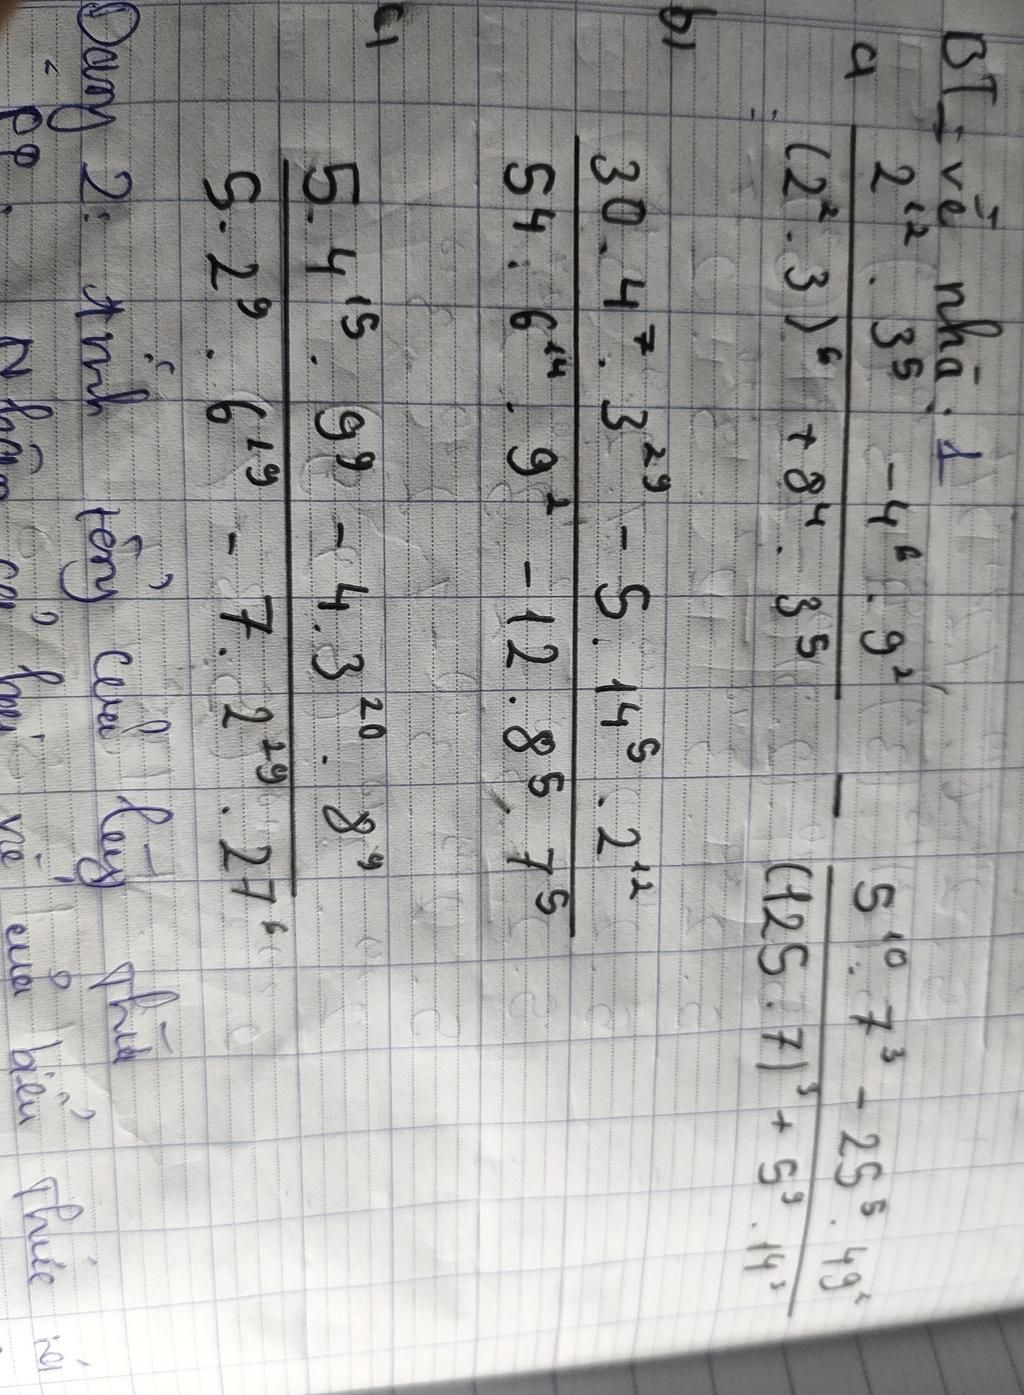 BT về nhà: 1
a) \frac{2^{12} . 3^5 - 4^6 . 9^2}{(2^2 . 3)^6 + 8^4 . 3^5} - \frac{5^{10} . 7^3 - 25^5 . 49^2}{(125 . 7)^3 + 5^9 . 14^3}
b) \frac{30 . 4^7 . 3^{29} - 5 . 14^5 . 2^{12}}{54 . 6^{14} . 9^2 - 12 . 8^5 . 7^5}
c) \frac{5 . 4^{15} . 9^9 - 4 . 3^{20} . 8^9}{5 . 2^9 . 6^{19} - 7 . 2^{29} . 27^6}
Dạng 2: tính tổng của lũy thừa
PP: Nhân cả hai vế của biểu thức